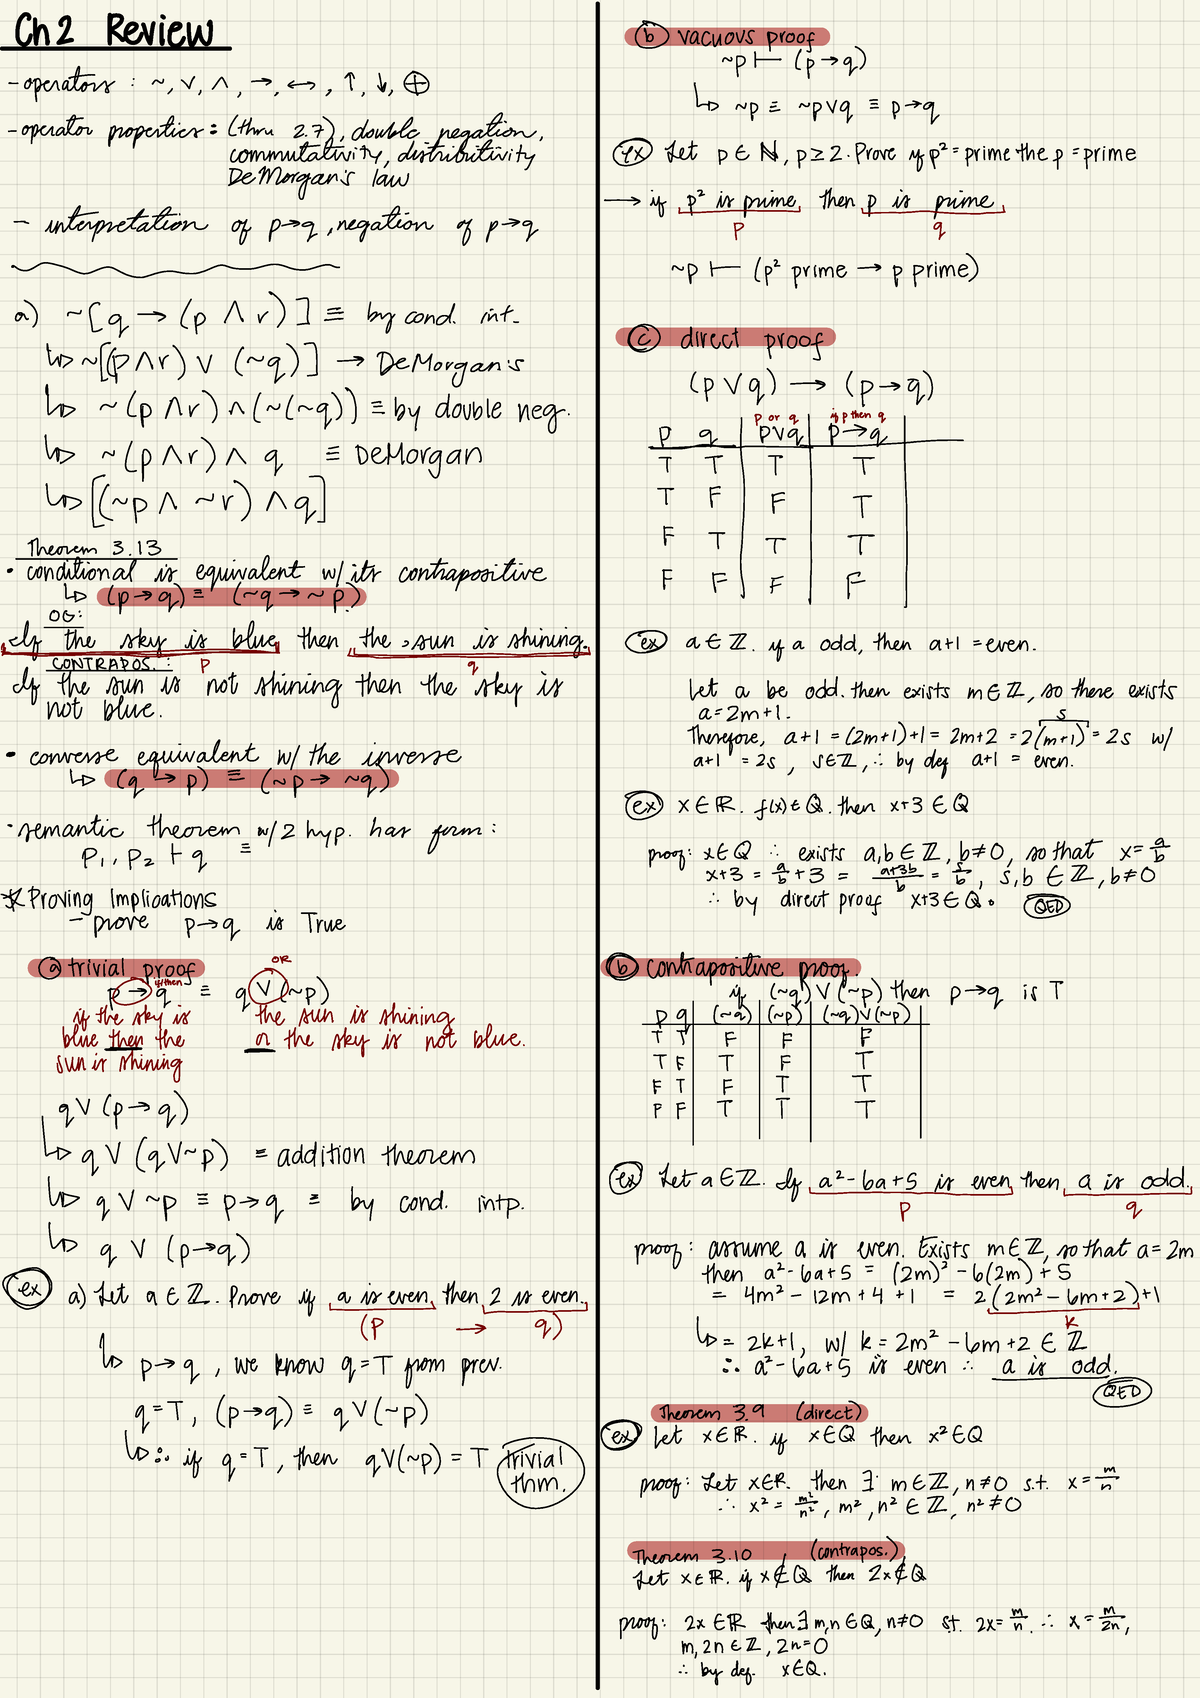 Ch 2 Review
- operators : ~, ∨, ∧, →, ↔, ↑, ↓, ⊕
- operator properties: (thru 2.7), double negation,
commutativity, distributivity
DeMorgan's law
- interpretation of p→q, negation of p→q
a) ~[q → (p ∧ r)] ≡ by cond. int.
↳ ~[(p∧r) ∨ (~q)] → DeMorgan's
↳ ~(p∧r) ∧ (~(~q)) ≡ by double neg.
↳ ~(p∧r) ∧ q ≡ DeMorgan
↳ [(~p ∧ ~r) ∧ q]
Theorem 3.13
• conditional is equivalent w/ its contrapositive
↳ (p→q) ≡ (~q → ~p)
OG:
If the sky is blue, then the sun is shining.
CONTRAPOS.: p q
If the sun is not shining then the sky is
not blue.
• converse equivalent w/ the inverse
↳ (q → p) ≡ (~p → ~q)
• semantic theorem w/ 2 hyp. has form:
P₁, P₂ ⊢ q ≡
* Proving Implications
- prove p→q is True
ⓐ trivial proof
OR
if/then
p → q ≡ q ∨ (~p)
if the sky is the sun is shining
blue then the or the sky is not blue.
sun is shining
q ∨ (p → q)
↳ q ∨ (q∨~p) ≡ addition theorem
↳ q ∨ ~p ≡ p→q ≡ by cond. intp.
↳ q ∨ (p→q)
ex a) Let a ∈ ℤ. Prove if a is even, then 2 is even.
(p → q)
↳ p→q, we know q=T from prev.
q=T, (p→q) ≡ q∨(~p)
↳ ∴ if q=T, then q∨(~p) = T trivial
thm.
ⓑ vacuous proof
~p ⊢ (p→q)
↳ ~p ≡ ~p∨q ≡ p→q
ex Let p ∈ ℕ, p≥2. Prove if p² = prime the p = prime
→ if p² is prime, then p is prime,
p q
~p ⊢ (p² prime → p prime)
ⓒ direct proof
(p ∨ q) → (p→q)
p or q if p then q
p q p∨q p→q
T T T T
T F F T
F T T T
F F F F
ex a ∈ ℤ. if a odd, then a+1 = even.
Let a be odd. then exists m ∈ ℤ, so there exists
a = 2m+1. s
Therefore, a+1 = (2m+1)+1 = 2m+2 = 2(m+1) = 2s w/
a+1 = 2s, s∈ℤ, ∴ by def a+1 = even.
ex x ∈ ℝ. f(x) ∈ ℚ. then x+3 ∈ ℚ
proof: x∈ℚ ∴ exists a,b ∈ ℤ, b≠0, so that x = a/b
x+3 = a/b + 3 = a+3b/b = s/b, s,b ∈ ℤ, b≠0
∴ by direct proof x+3 ∈ ℚ. QED
ⓑ contrapositive proof.
if (~q) ∨ (~p) then p→q is T
p q (~q) (~p) (~q)∨(~p)
T T F F F
T F T F T
F T F T T
P F T T T
ex Let a ∈ ℤ. If a²-6a+5 is even, then a is odd.
p q
proof: assume a is even. Exists m∈ℤ, so that a=2m
then a²-6a+5 = (2m)² - 6(2m) + 5
= 4m² - 12m + 4 + 1 = 2(2m² - 6m + 2) + 1
k
↳ = 2k+1, w/ k = 2m² - 6m + 2 ∈ ℤ
∴ a²-6a+5 is even ∴ a is odd.
QED
Theorem 3.9 (direct)
ex Let x∈ℝ. if x∈ℚ then x²∈ℚ
proof: Let x∈ℝ. then ∃ m∈ℤ, n≠0 s.t. x = m/n
∴ x² = m²/n², m², n² ∈ ℤ, n² ≠ 0
Theorem 3.10 (contrapos.)
Let x∈ℝ. if x∉ℚ then 2x∉ℚ
proof: 2x ∈ℝ then ∃ m,n ∈ℚ, n≠0 st. 2x = m/n. ∴ x = m/2n,
m, 2n ∈ ℤ, 2n=0
∴ by def. x∈ℚ.